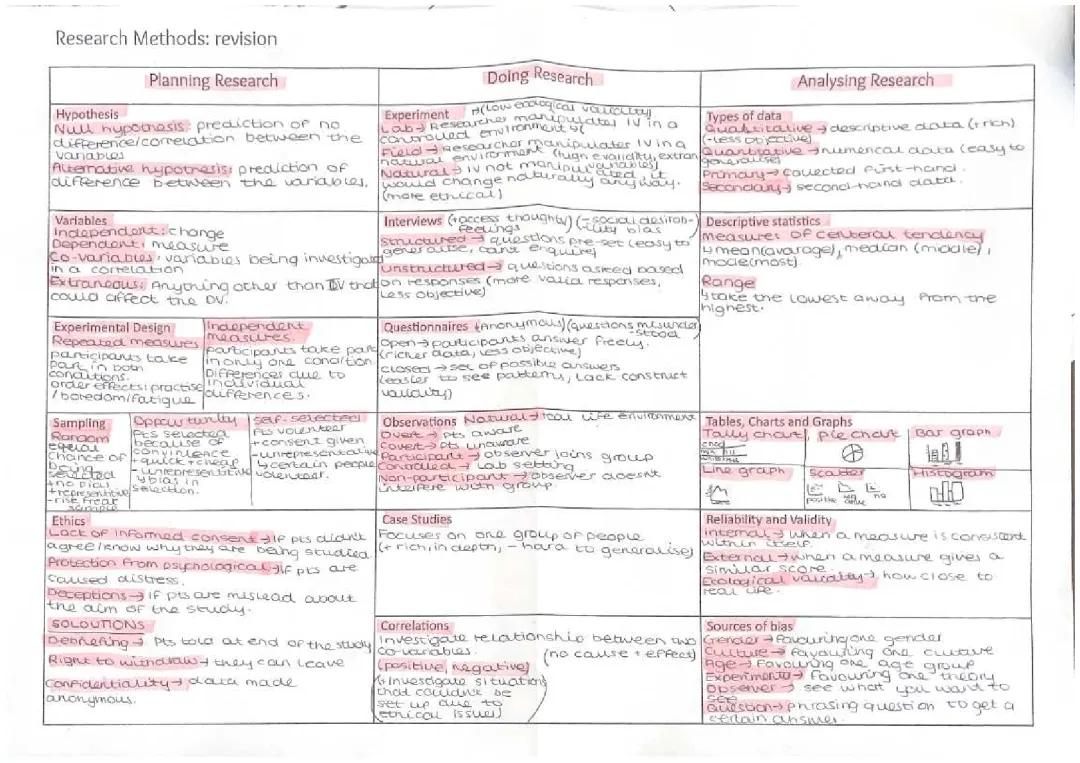 Research Methods: revision
Planning Research
Hypothesis
Null hypothesis: prediction of no
difference/correlation between the
variables
Alternative hypothesis: prediction of
difference between the variables.
Variables
Independent: change
Dependent: measure
Co-variables: variables being investigated
in a correlation
Extraneous: Anything other than IV that
could affect the DV.
Experimental Design
Repeated measures
participants take
part in both
conditions.
order effects: practise
/boredom/fatigue
Independent
measures.
participants take part
in only one condition
Differences due to
individual
differences.
Sampling
Random
equal
chance of
being
selected
+no bias
+representitive
-risk freak
sample
Oppurtunity
Pts selected
because of
convinience
+quick+cheap
-unrepresentitive
↳bias in
selection.
self-selected
Pts volunteer
+consent given
-unrepresentative
↳certain people
volenteer.
Ethics
Lack of informed consent → If pts didn't
agree/know why they are being studied
Protection from psychological → if pts are
caused distress.
Deceptions → if pts are mislead about
the aim of the study.
SOLOUTIONS
Debriefing → Pts told at end of the study
Right to withdraw → they can leave
Confidentiality → data made
anonymous.
Doing Research
Experiment (low ecological validity)
Lab → Researcher manipulates IV in a
controlled environment
Field → Researcher manipulates IV in a
natural environment (high e validity, extran
variables)
Natural → IV not manipulated, it
would change naturally anyway.
(more ethical)
Interviews (+access thoughts/ feelings) (-social desirability bias
Structured → questions pre-set (easy to
generalise, can't enquire)
Unstructured → questions asked based
on responses (more valid responses,
less objective)
Questionnaires (Anonymous) (questions misunderstood
Open → participants answer freely.
(richer data, less objective)
closed → set of possible answers
(easier to see patterns, lack construct
validity)
Observations Natural → real life environment
Overt → pts aware
Overt → pts unaware
Participant → observer joins group
Controlled → Lab setting
Non-participant → observer doesnt
interfere with group.
Case Studies
Focuses on one group of people
(+ rich, in depth, - hard to generalise)
Correlations
Investigate relationship between two
co-variables. (no cause + effect)
(positive, negative)
(+Investigate situations
that couldn't be
set up due to
ethical issues)
Analysing Research
Types of data
Qualitative → descriptive data (+rich)
(-less objective)
Quantitative → numerical data (easy to
generalise)
Primary → collected first-hand.
Secondary → second-hand data.
Descriptive statistics
Measures of central tendency
↳mean(avarage), median (middle),
mode(most).
Range
↳take the lowest away from the
highest.
Tables, Charts and Graphs
Tally chart
pie chart
Bar graph
Line graph
Scatter
positive
no
Histogram
Reliability and Validity
Internal → when a measure is consistent
within itself.
External → when a measure gives a
similar score.
Ecological validity → how close to
real life.
Sources of bias
Gender → favouring one gender
Culture → favouring one culture
Age → favouring one age group
Experimenta → favouring one theory
Observer → see what you want to
see
Question → phrasing question to get a
certain answer.